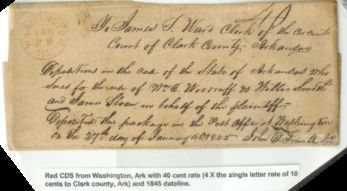 To James S Ward Clerk of the Circuit
Court of Clark County Arkansas
Depositions in the case of the State of Arkansas who
Sues for the use of Wm E Woodruff vs Willis Smith
and James Sloan in behalf of the plaintiff
Deposited the package in the Post Office at Washington
on the 27th day of January 1845 John
Red CDS from Washington, Ark with 40 cent rate (4 X the single letter rate of 10
cents to Clark county, Ark) and 1845 dateline.